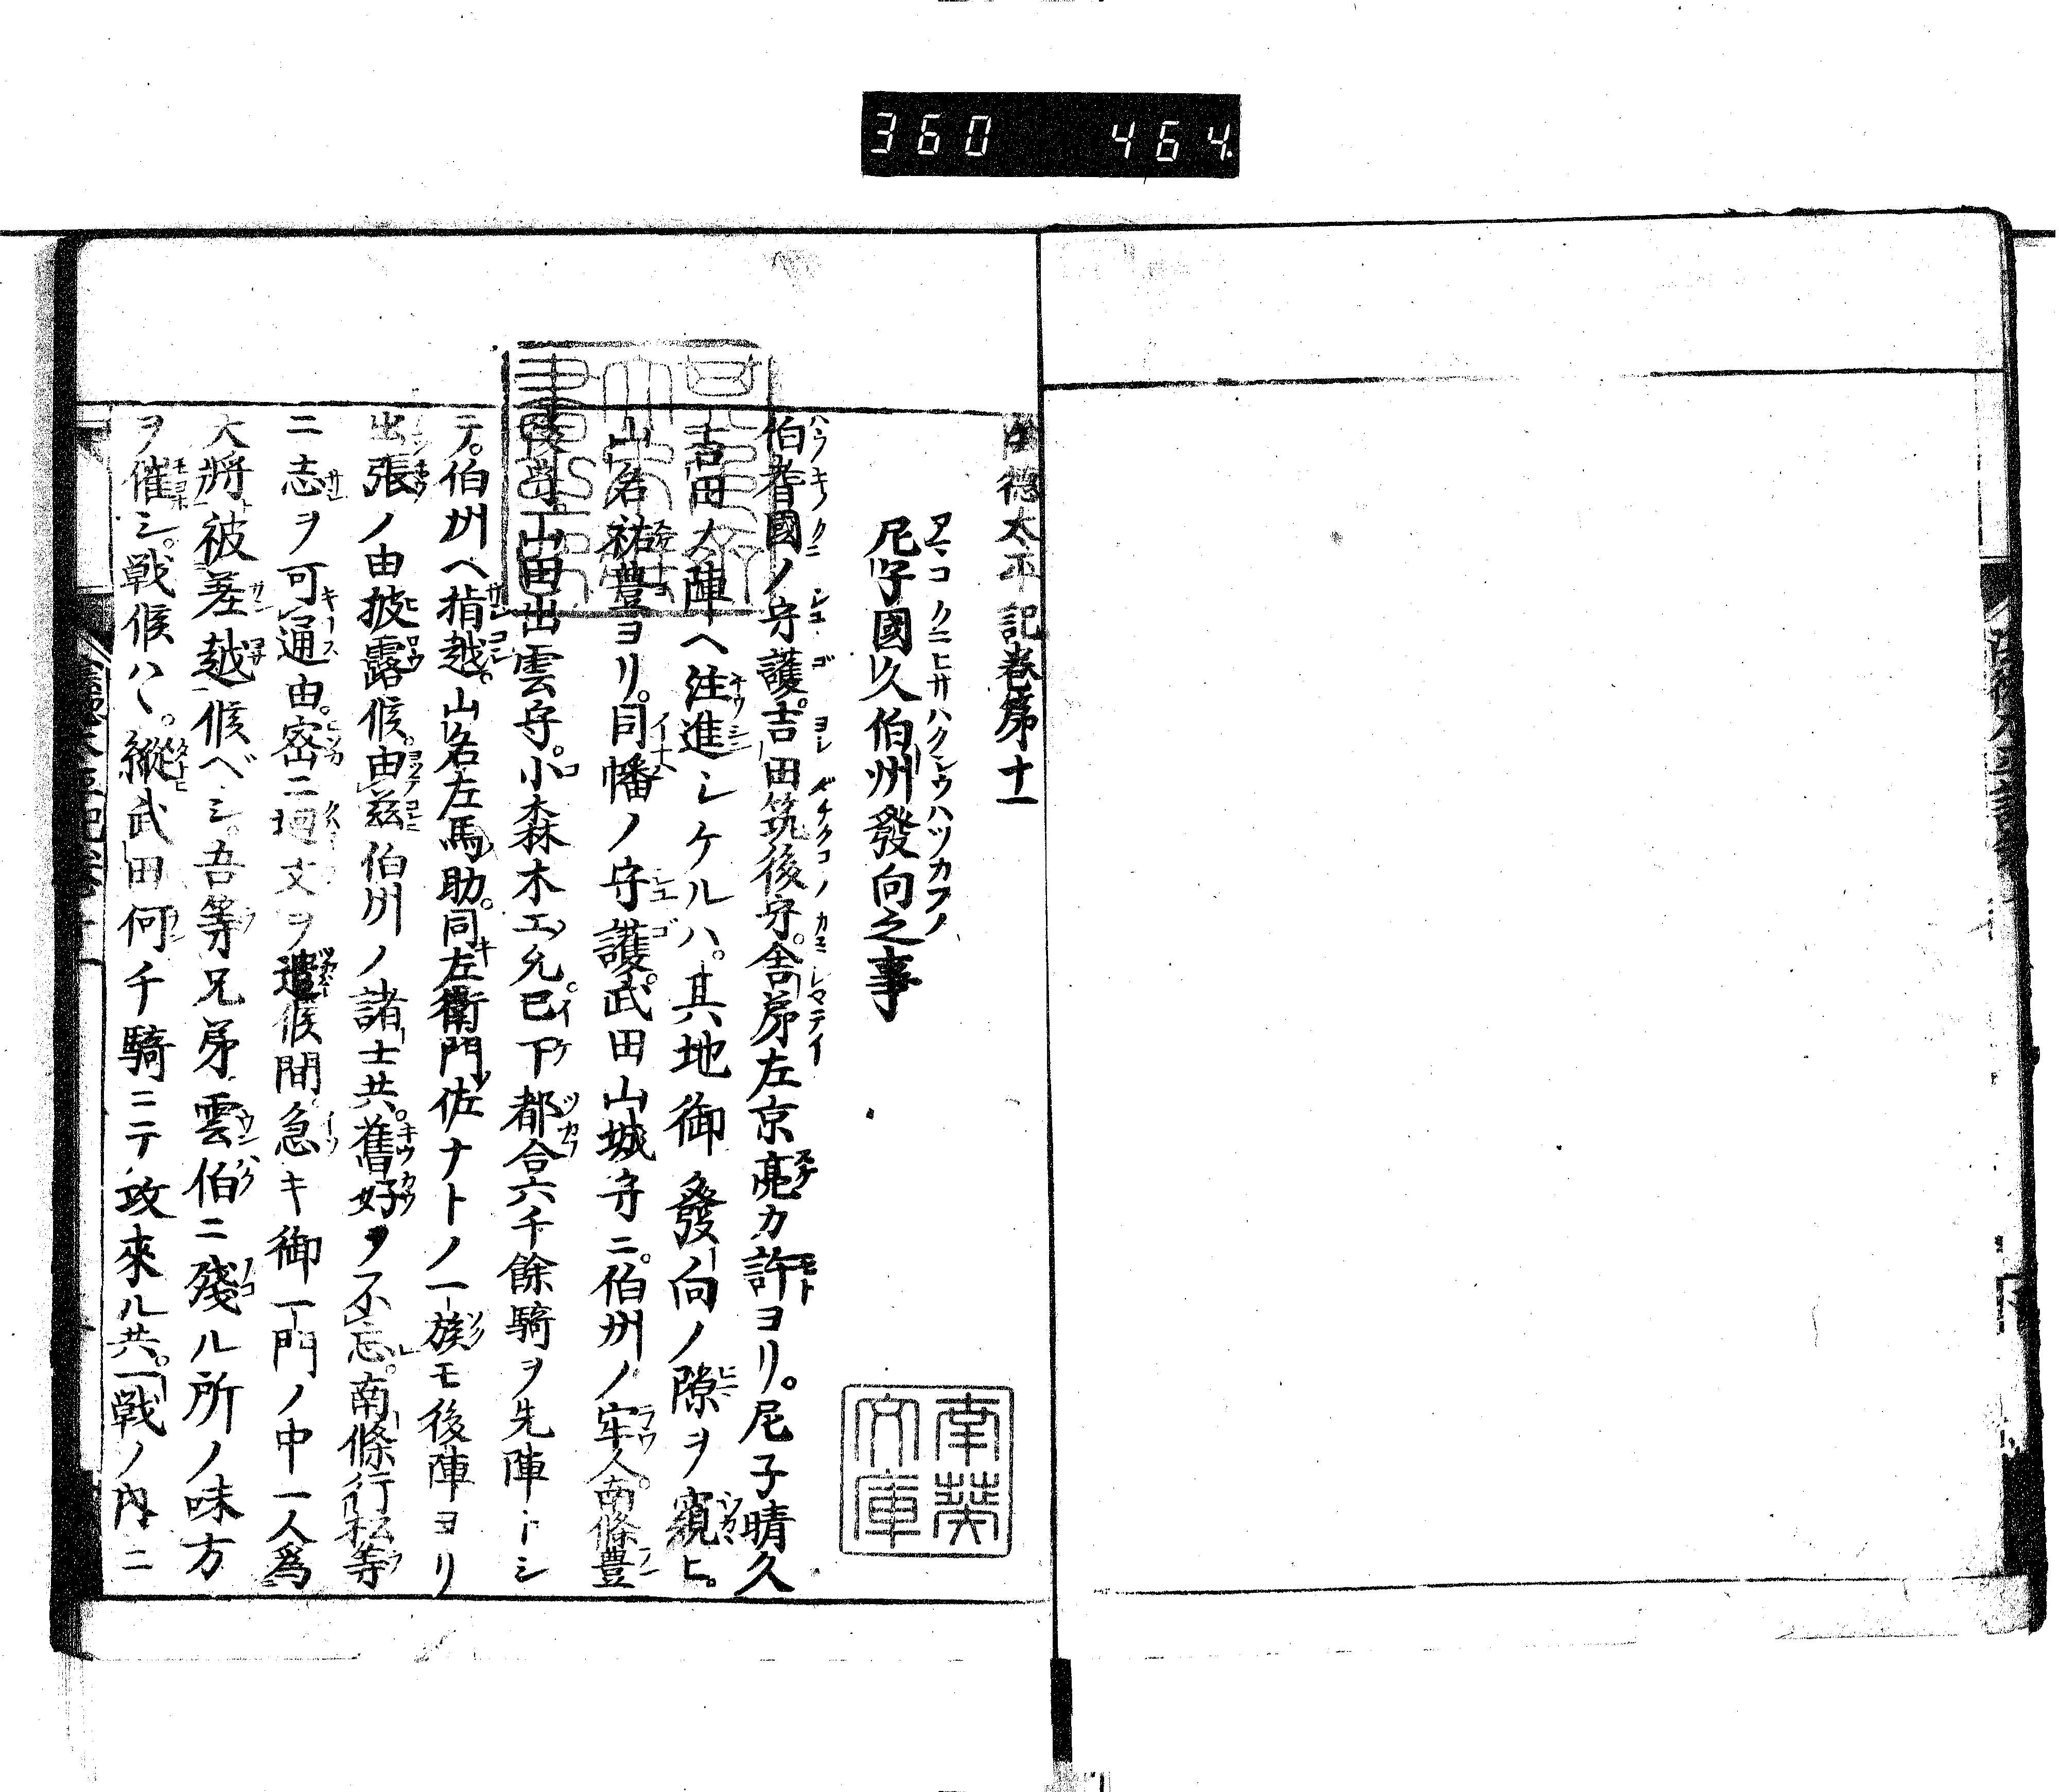 360 464
陰德太平記卷第十一
尼子國久伯州發向之事
伯耆國ノ守護。吉田筑後守。舎弟左京亮カ許ヨリ。尼子晴久
吉田大陣ヘ注進シケルハ。其地御發向ノ隙ヲ窺ヒ。
山名祐豊ヨリ。同幡ノ守護。武田山城守ニ。伯州ノ牢人。南條豊
後守。山田出雲守。小森木工允。已下都合六千餘騎ヲ先陣トシ
テ。伯州ヘ指越。山名左馬助。同左衛門佐ナトノ一族モ後陣ヨリ
出張ノ由披露候。由茲伯州ノ諸士共。舊好ヲ不忘。南條行松等
ニ志ヲ可通由。密ニ廻文ヲ遣候間。急キ御一門ノ中一人爲
大將被差越候ベシ。吾等兄弟雲伯ニ殘ル所ノ味方
ヲ催シ。戰候ハヽ。縦武田何千騎ニテ攻來ル共。一戰ノ内ニ
南葵
文庫